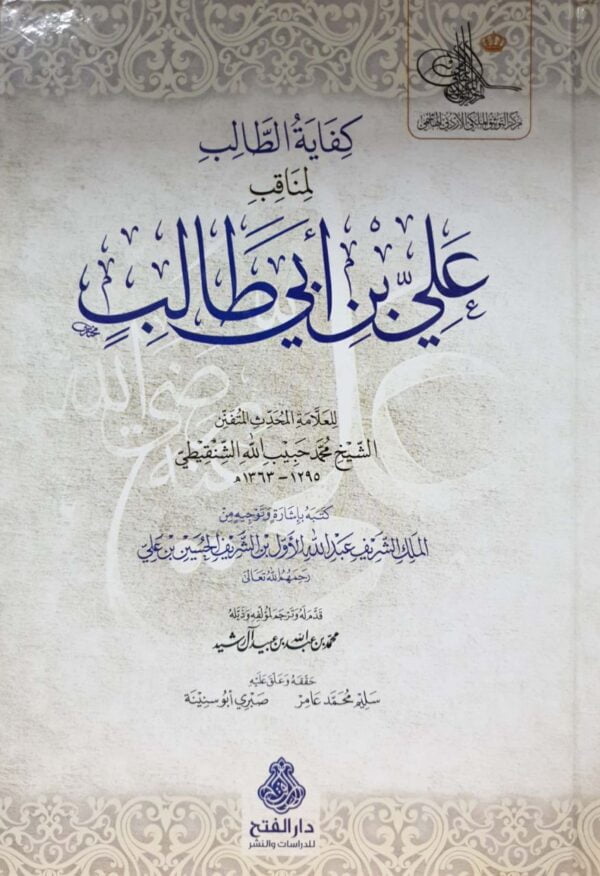 مركز التوثيق الملكي الأردني الهاشمي
كِفَايَةُ الطَّالِبِ
لِمَنَاقِبِ
عَلِيِّ بْنِ أَبِي طَالِبٍ
رضي الله عنه
للعَلَّامَةِ المُحَدِّثِ المُتَفَنِّن
الشَّيْخِ مُحَمَّد حَبِيبِ اللهِ الشَّنْقِيطِيّ
١٢٩٥ - ١٣٦٣هـ
كَتَبَهُ بِإِشَارَةٍ وَتَوْجِيهٍ مِنَ
المَلِكِ الشَّرِيفِ عَبْدِ اللهِ الأَوَّلِ بْنِ الشَّرِيفِ الحُسَيْنِ بْنِ عَلِيّ
رَحِمَهُمُ اللهُ تَعَالَى
قَدَّمَ لَهُ وَتَرْجَمَ لِمُؤَلِّفِهِ وَذَيَّلَهُ
محمد بن عبد الله بن عبيد آل رشيد
حَقَّقَهُ وَعَلَّقَ عَلَيْهِ
سَلِيم مُحَمَّد عَامِر صَبْرِي أَبُو سِنِينَة
دار الفتح
للدراسات والنشر